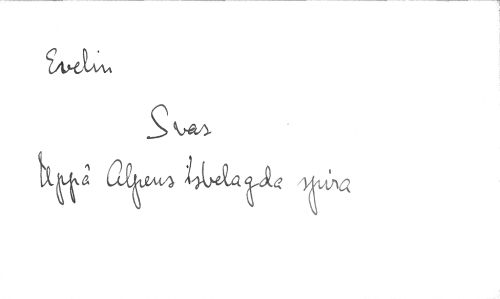 Evelin
Svar
Uppå Alpens isbelagda spira